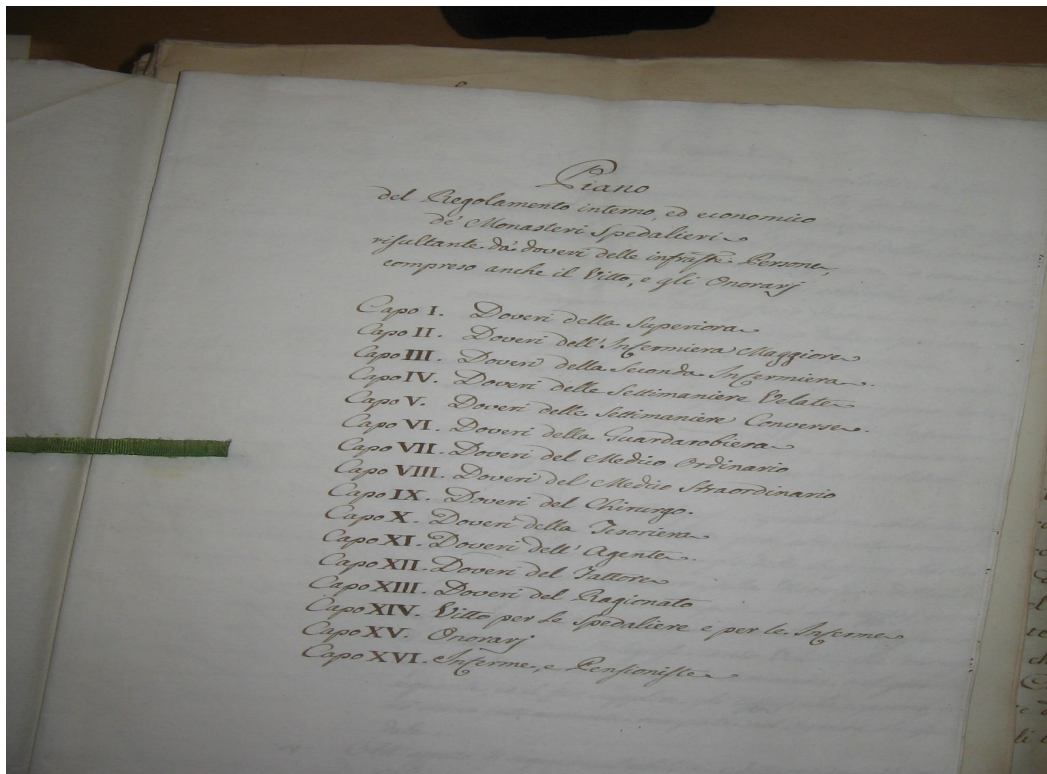 Piano
del Regolamento interno, ed economico
de' Monasteri Spedalieri
risultante da' doveri delle infrastte Persone,
compreso anche il Vitto, e gli Onorarj
Capo I. Doveri della Superiora
Capo II. Doveri dell' Infermiera Maggiore
Capo III. Doveri della Seconda Infermiera.
Capo IV. Doveri delle Settimaniere Velate
Capo V. Doveri delle Settimaniere Converse.
Capo VI. Doveri della Guardarobiera
Capo VII. Doveri del Medico Ordinario
Capo VIII. Doveri del Medico Straordinario
Capo IX. Doveri del Chirurgo.
Capo X. Doveri della Tesoriera
Capo XI. Doveri dell' Agente.
Capo XII. Doveri del Fattore
Capo XIII. Doveri del Ragionato
Capo XIV. Vitto per le Spedaliere e per le Inferme
Capo XV. Onorarj
Capo XVI. Inferme, e Pensioniste